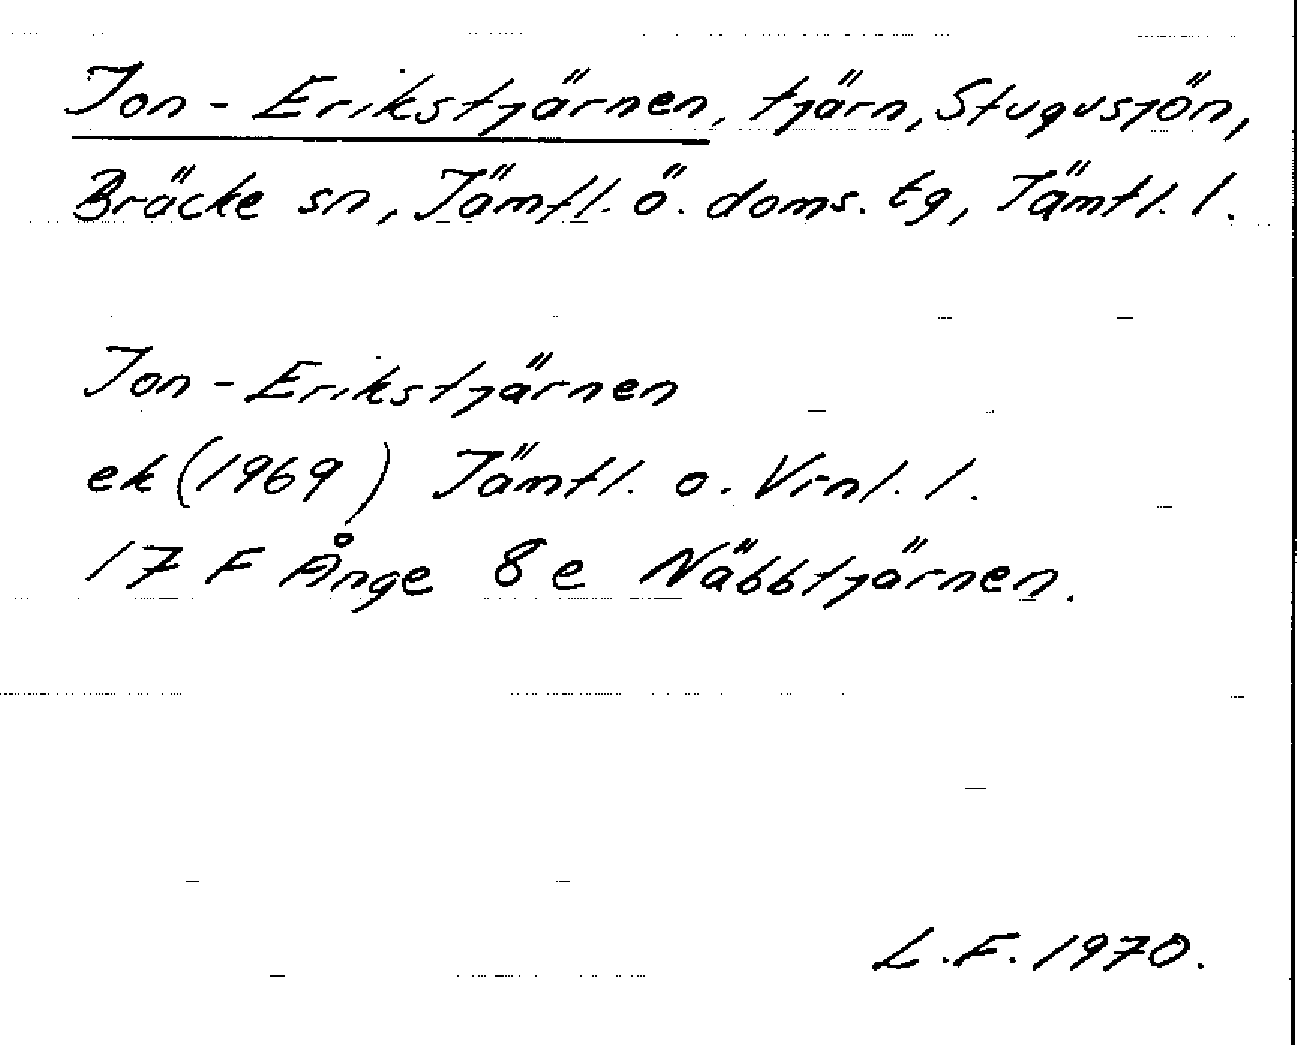 Jon-Erikstjärnen, tjärn, Stugusjön,
Bräcke sn, Jämtl. ö. doms. tg, Jämtl. l.
Jon-Erikstjärnen
ek (1969) Jämtl. o. Vrnl. l.
17 F Ånge 8 e Näbbtjärnen.
L.F. 1970.